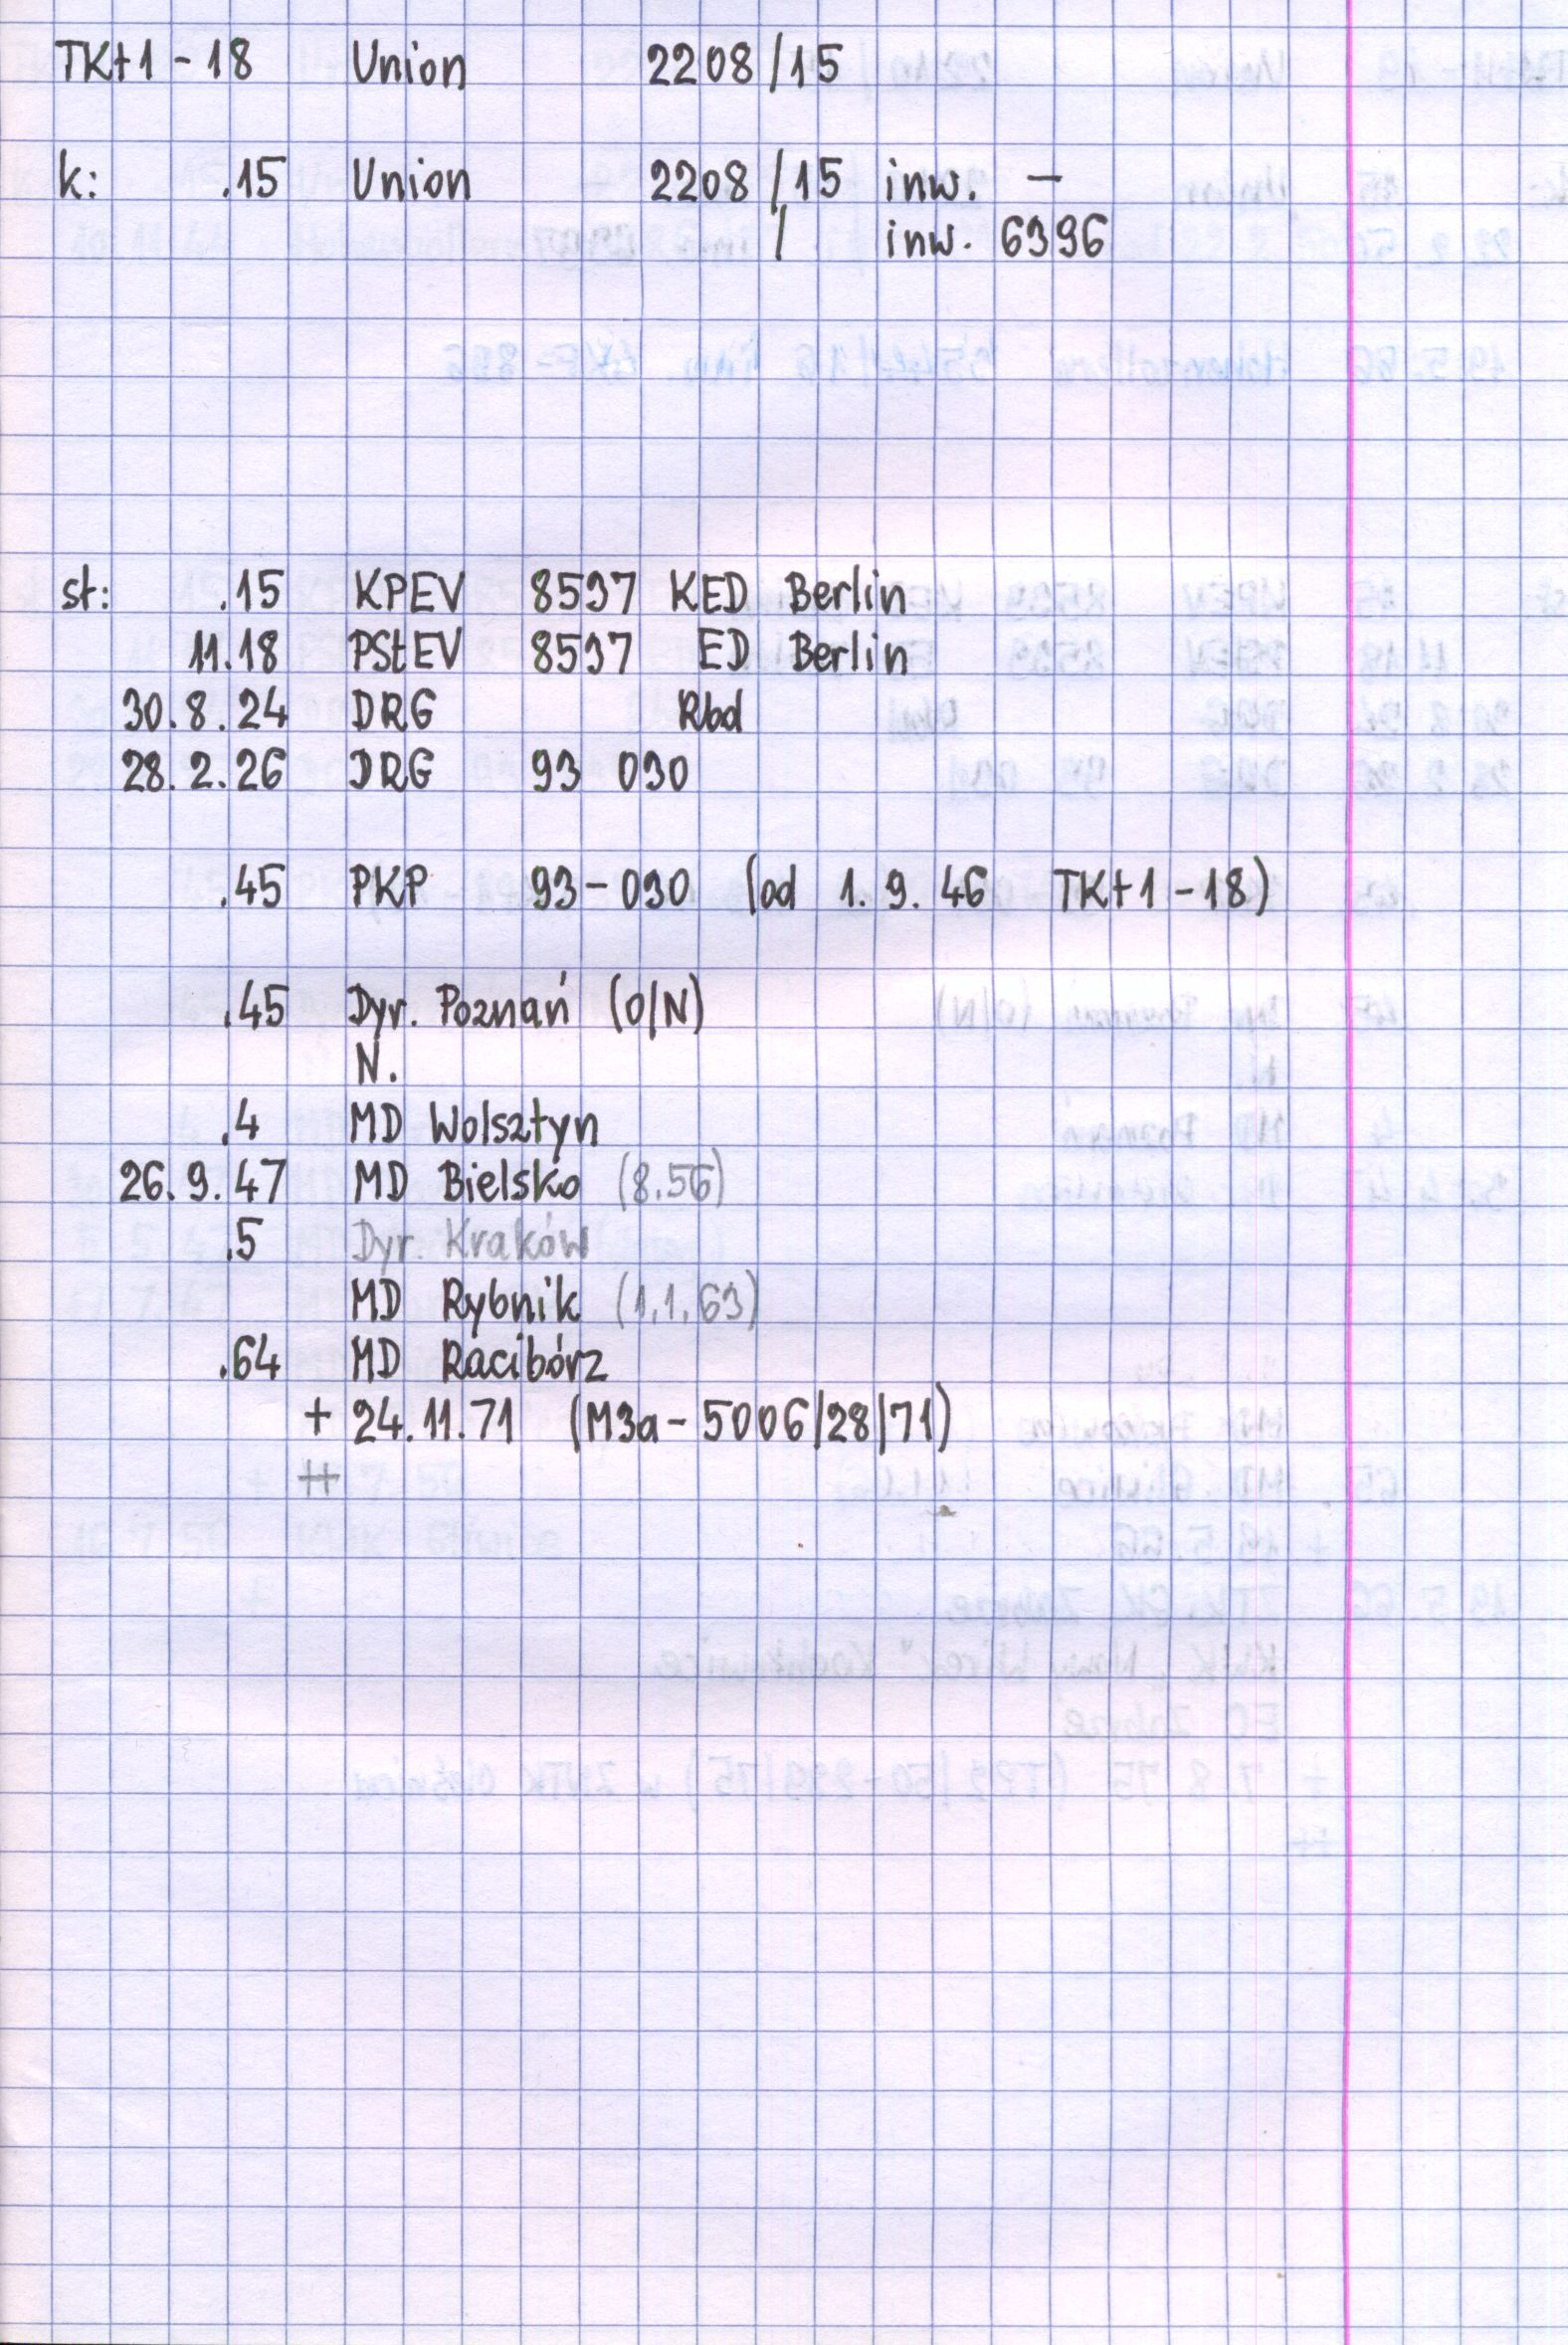 TKt1-18 Union 2208/15
k: .15 Union 2208/15 inw. —
/ inw. 6396
st: .15 KPEV 8537 KED Berlin
11.18 PStEV 8537 ED Berlin
30.8.24 DRG Rbd
28.2.26 DRG 93 030
.45 PKP 93-030 (od 1.9.46 TKt1-18)
.45 Dyr. Poznań (O/N)
N.
.4 MD Wolsztyn
26.9.47 MD Bielsko (8.56)
.5 Dyr. Kraków
MD Rybnik (1.1.63)
.64 MD Racibórz
+ 24.11.71 (M3a-5006/28/71)
++